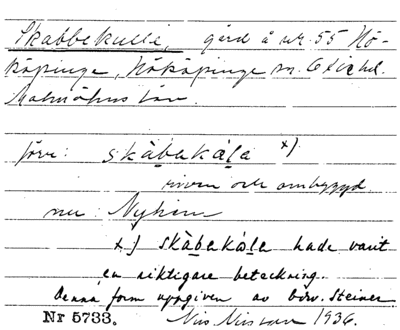 Skabbekulle, gård å nr. 55 Hö-
köpinge, Hököpinge sn. Oxie hd.
Malmöhus län.
förr: skàbakála x)
riven och ombyggd.
nu: Nyhem
x) skàbakála hade varit
en riktigare beteckning.
Denna form uppgiven av förv. Steiner
Nr 5733. Nils Nilsson 1936.